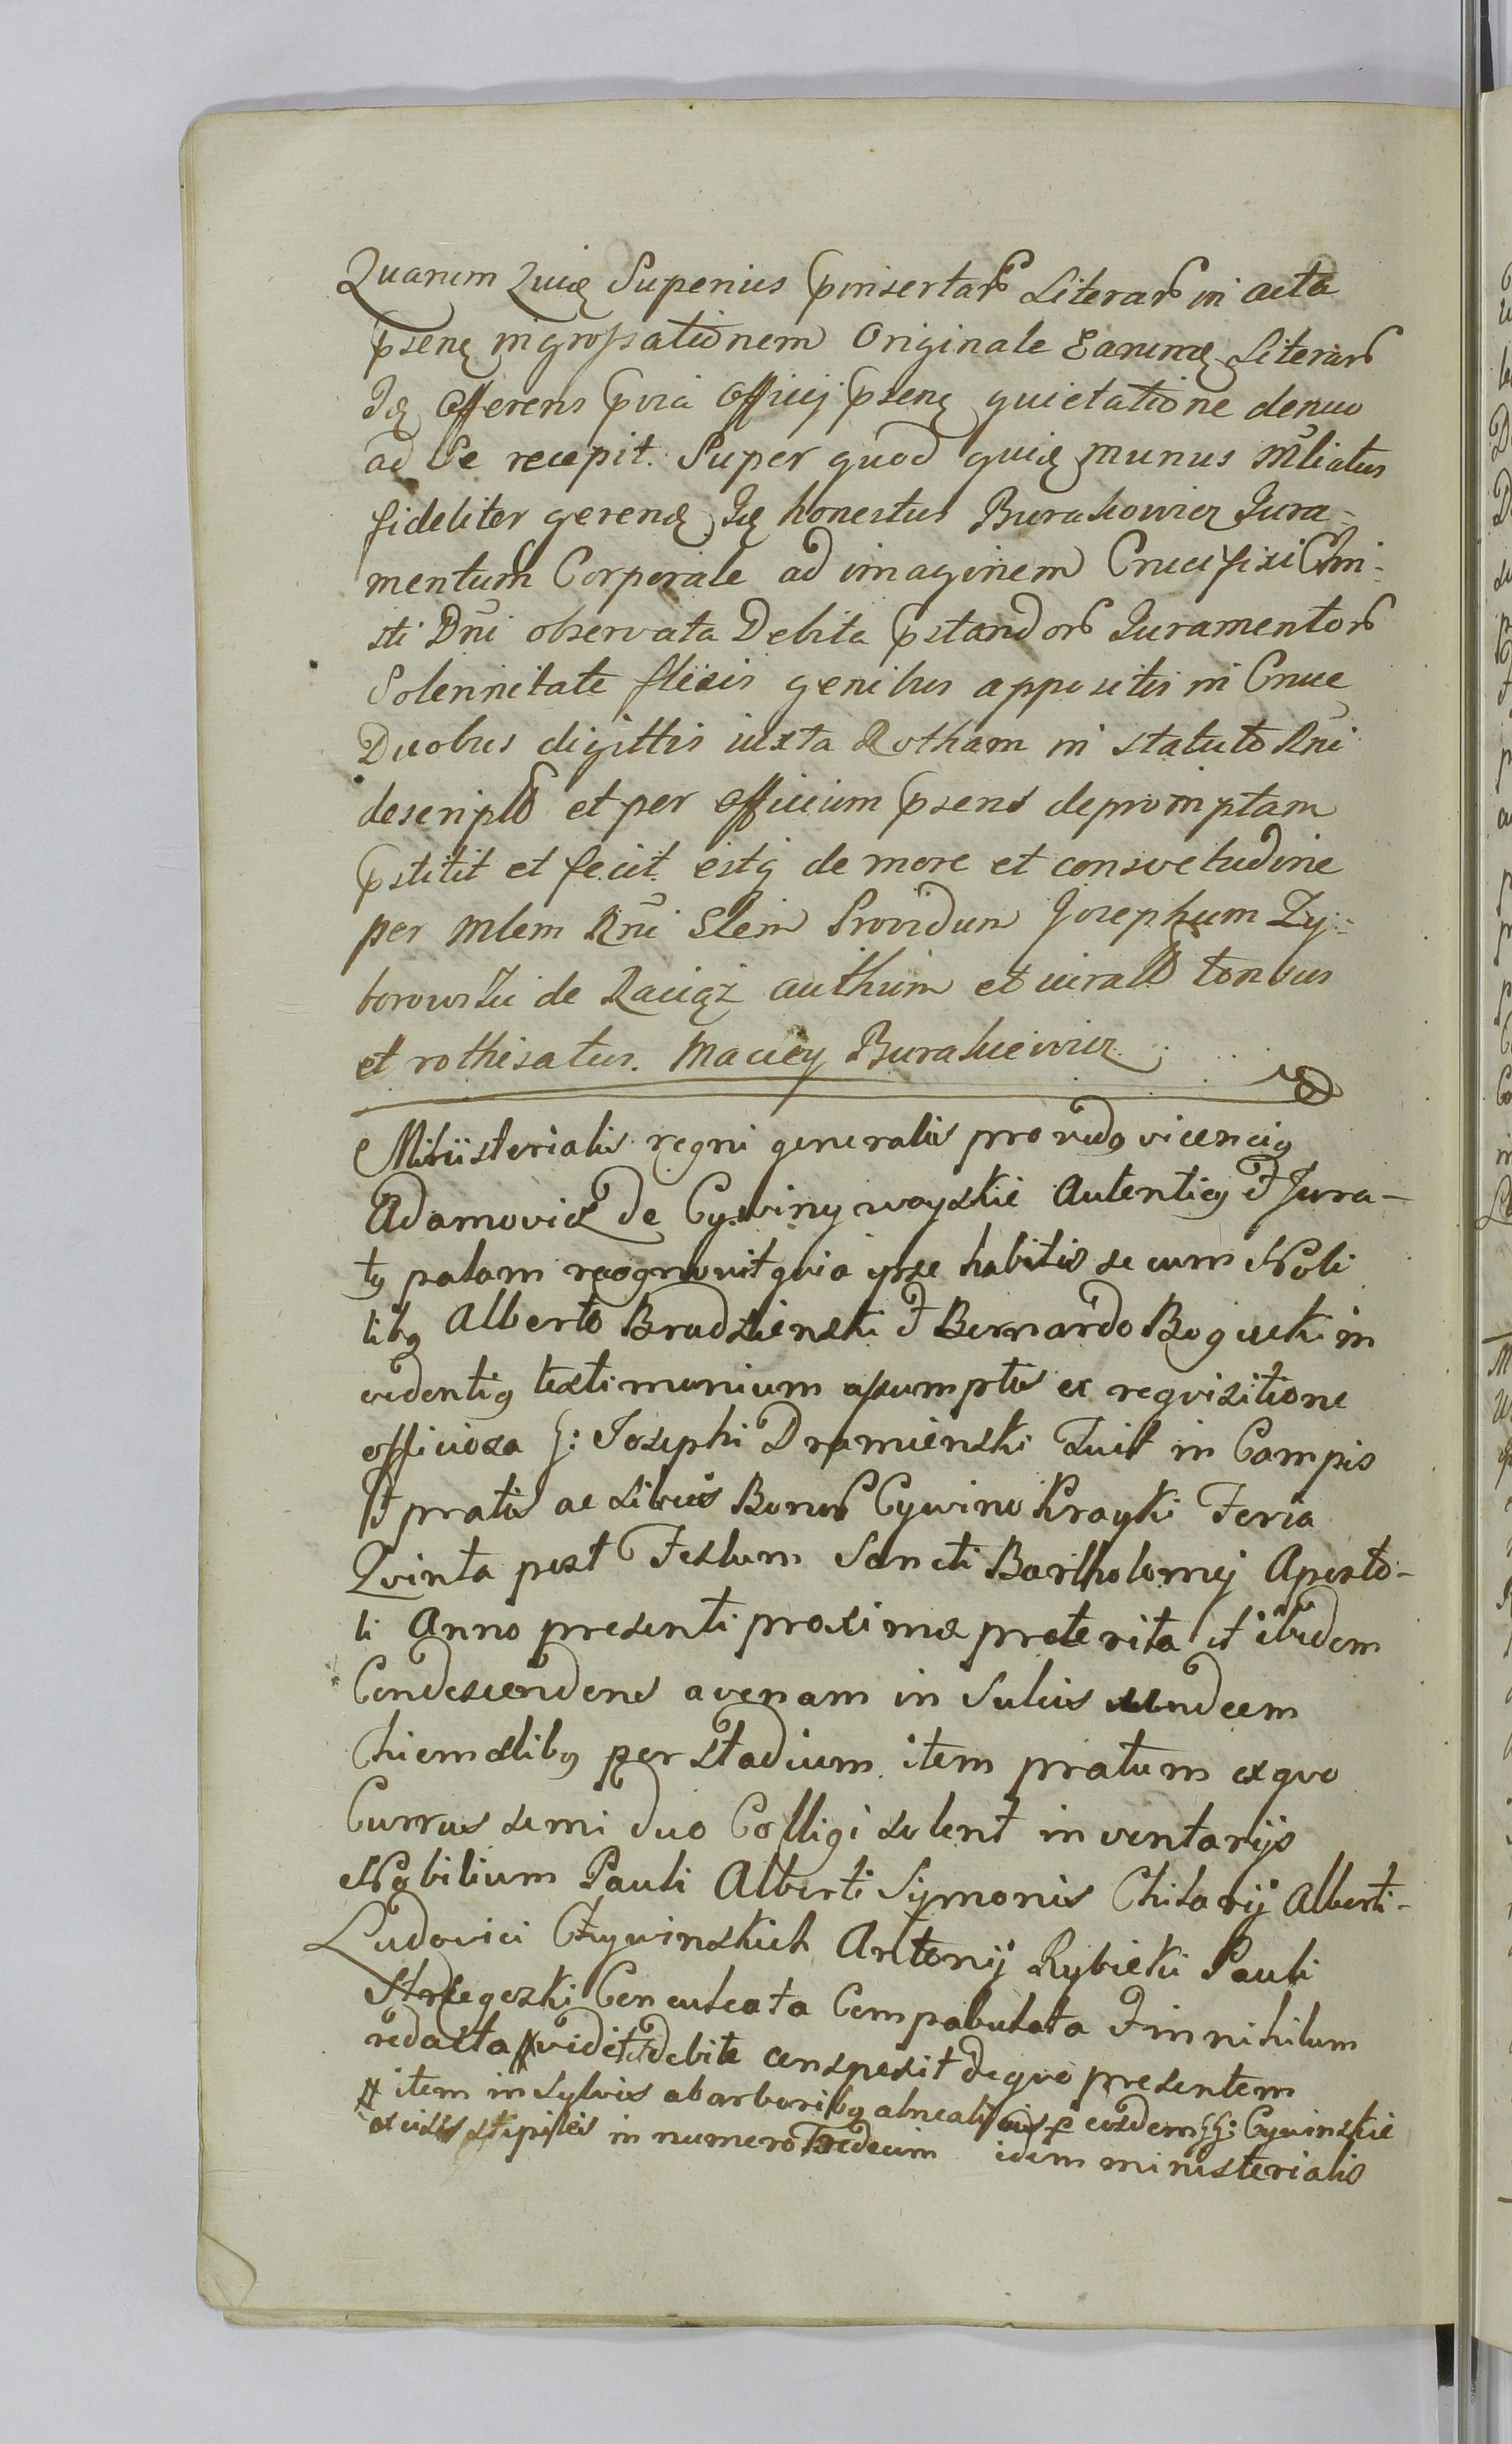 Quarum Quidę Superius pinsertarō Literarō in acta
psenę ingrossationem Originale Earundę Literarō
Idę Offerens pvia Officij psenę quietatione denuo
ad Se recepit. Super quod quidę munus Mliatus
fideliter gerendę Idę honestus Burakowicz Jura-
mentum Corporale ad imaginem Crucifixi Chri-
sti Dni observata Debita pstandorō Juramentorō
Solennitate flexis genibus appositis in Cruce
Duobus digittis iuxta Rotham in statuto Rni
descripto et per officium psens depromptam
pstitit et fecit estq de more et consvetudine
per Mlem Rni Glem Providum Josephum Zy-
borowski de Raciąż authum et iurato tonsus
et rothisatus. Maciey Burakiewicz
Ministerialis regni generalis providq vicencig
Adamovicz de Cywiny woyskie Autenticq et Jura-
tq palam recognovit quia ipse habitis secum Nobi
libq Alberto Brudzienski et Bernardo Bogucki in
evidentiq testimonium assumptis ex requisitione
officiosa G: Josephi Dramienski Fuit in Campis
et pratis ac silvis Bonorō Cywino Krayki Feria
Quinta post Festum Sancti Bartholomej Aposto-
li Anno presenti proxime preterita et ibidem
Condescendens avenam in Sulcis undecem
Chiemalibq per stadium item pratum ex quo
Currus semi duo Colligi solent in ventarijs
Nobilium Pauli Alberti Symonis Chilarij Alberti-
Ludovici Cżywinskich Antonij Rybicki Pauli
Strzegoski Conculcata Compabulata et in nihilum
redacta # vidit et debite conspexit de quo presentem
# item in sylvis ab arboribq alneatis p eosdem GG: Cywinskie
excisis stipites in numero Tredecim idem ministerialis